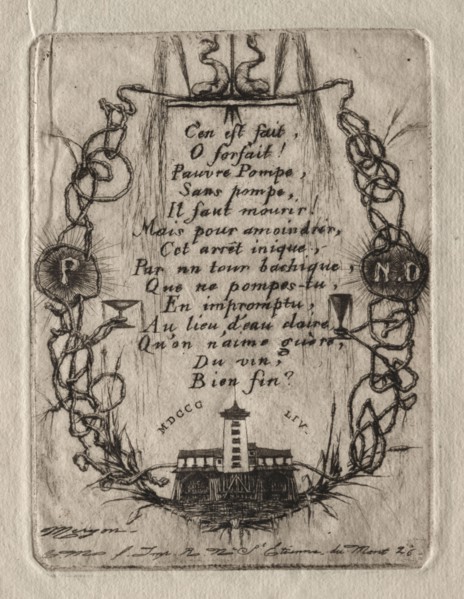 C'en est fait,
O forfait!
Pauvre Pompe,
Sans pompe,
Il faut mourir!
Mais pour amoindrir,
Cet arrêt inique,
Par un tour bachique,
Que ne pompes-tu,
En impromptu,
Au lieu d'eau claire
Qu'on n'aime guère,
Du vin,
Bien fin?
P
N.D
MDCCC LIV.
Meryon
Imp. R. N. St Etienne du Mont 26.